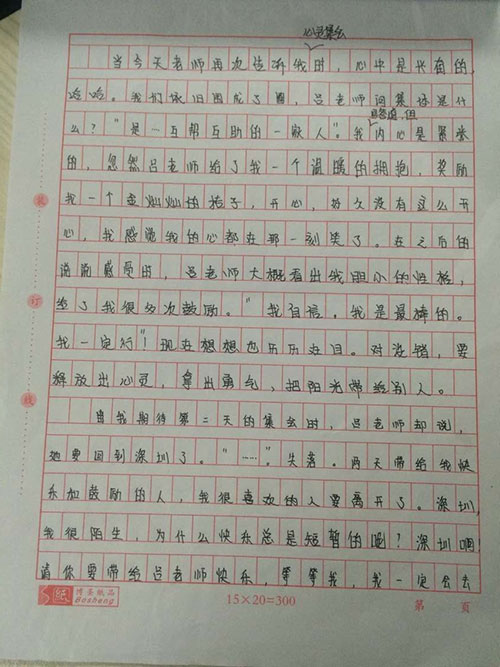 心灵集会
当今天老师再次告诉我时，心中是兴奋的，
哈哈。我们依旧围成了圈，吕老师问集体是什
么？“是…互帮互助的一家人”。我内心是紧张
自答道，但
的，忽然吕老师给了我一个温暖的拥抱，奖励
我一个金灿灿的桔子，开心，好久没有这么开
心，我感觉我的心都在那一刻笑了。在之后的
说说感受时，吕老师大概看出我胆小的性格，
给了我很多次鼓励。“我自信，我是最棒的。
我一定行”！现在想想也历历在目。对没错，要
释放出心灵，拿出勇气，把阳光带给别人。
自我期待第二天的集会时，吕老师却说，
她要回到深圳了。“……”。失落。两天带给我快
乐加鼓励的人，我很喜欢的人要离开了。深圳，
我很陌生，为什么快乐总是短暂的呢？深圳啊！
请你要带给吕老师快乐，等等我，我一定会去
装
订
线
纸 博圣纸品 Bosheng 15×20=300 第 页